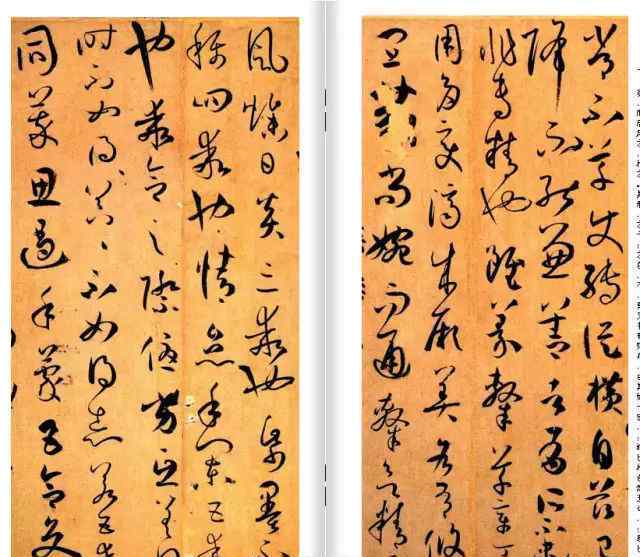 常不草使轉縱橫自茲已
降不能兼善者有所不
非專精也雖篆隸草章工
用多變濟成厥美各有攸
宜篆尚婉而通隸欲精
風燥日炎三乖也紙墨不
稱四乖也情怠手闌五乖
也乖合之際優劣互差
時不如得器〻不如得志若五乖
同萃思遏手蒙五合交